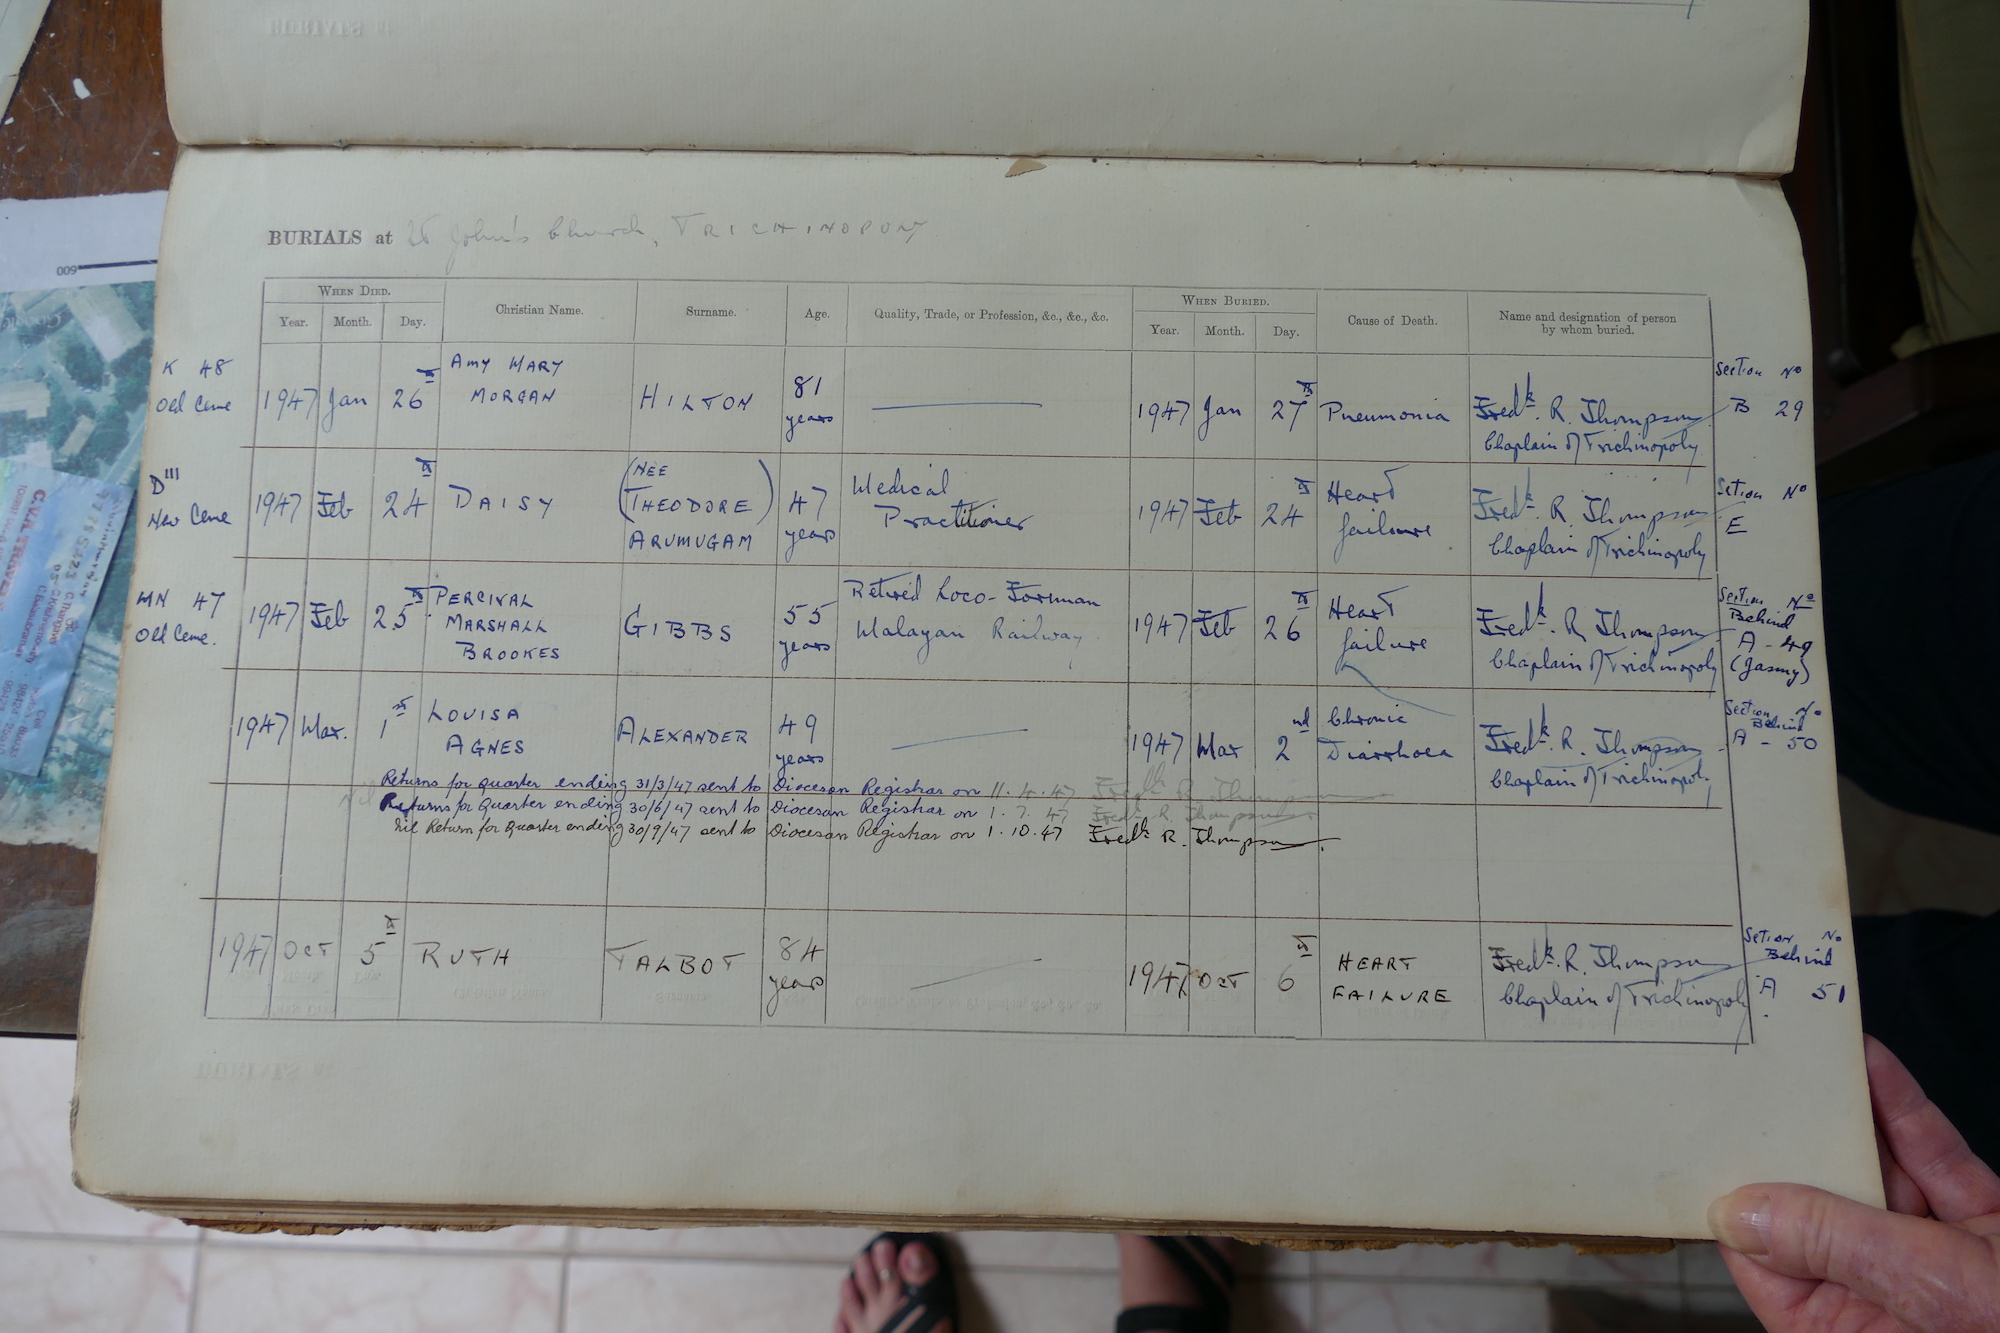 BURIALS at St John's Church, TRICHINOPOLY
WHEN DIED.
Year. Month. Day.
Christian Name.
Surname.
Age.
Quality, Trade, or Profession, &c., &c., &c.
WHEN BURIED.
Year. Month. Day.
Cause of Death.
Name and designation of person
by whom buried.
K 48
Old Ceme
1947 Jan 26th
AMY MARY
MORGAN
HILTON
81
years
1947 Jan 27th
Pneumonia
Fredk. R. Thompson
Chaplain of Trichinopoly
Section No
B 29
D III
New Ceme
1947 Feb 24th
DAISY
(NEE
THEODORE)
ARUMUGAM
47
years
Medical
Practitioner
1947 Feb 24th
Heart
failure
Fredk. R. Thompson
Chaplain of Trichinopoly
Section No
E
MN 47
Old Ceme.
1947 Feb 25th
PERCIVAL
MARSHALL
BROOKES
GIBBS
55
years
Retired Loco-Forman
Malayan Railway
1947 Feb 26th
Heart
failure
Fredk. R. Thompson
Chaplain of Trichinopoly
Section No
Behind
A - 49
1947 Mar. 1st
LOUISA
AGNES
ALEXANDER
49
years
1947 Mar 2nd
Chronic
Diarrhoea
Fredk. R. Thompson
Chaplain of Trichinopoly
Section No
Behind
A - 50
Returns for quarter ending 31/3/47 sent to Diocesan Registrar on 11.4.47 Fredk R. Thompson
Nil Returns for Quarter ending 30/6/47 sent to Diocesan Registrar on 1.7.47 Fredk R. Thompson
Nil Return for Quarter ending 30/9/47 sent to Diocesan Registrar on 1.10.47 Fredk R. Thompson
1947 OCT 5th
RUTH
TALBOT
84
years
1947 OCT 6th
HEART
FAILURE
Fredk. R. Thompson
Chaplain of Trichinopoly
Section No
Behind
A 51